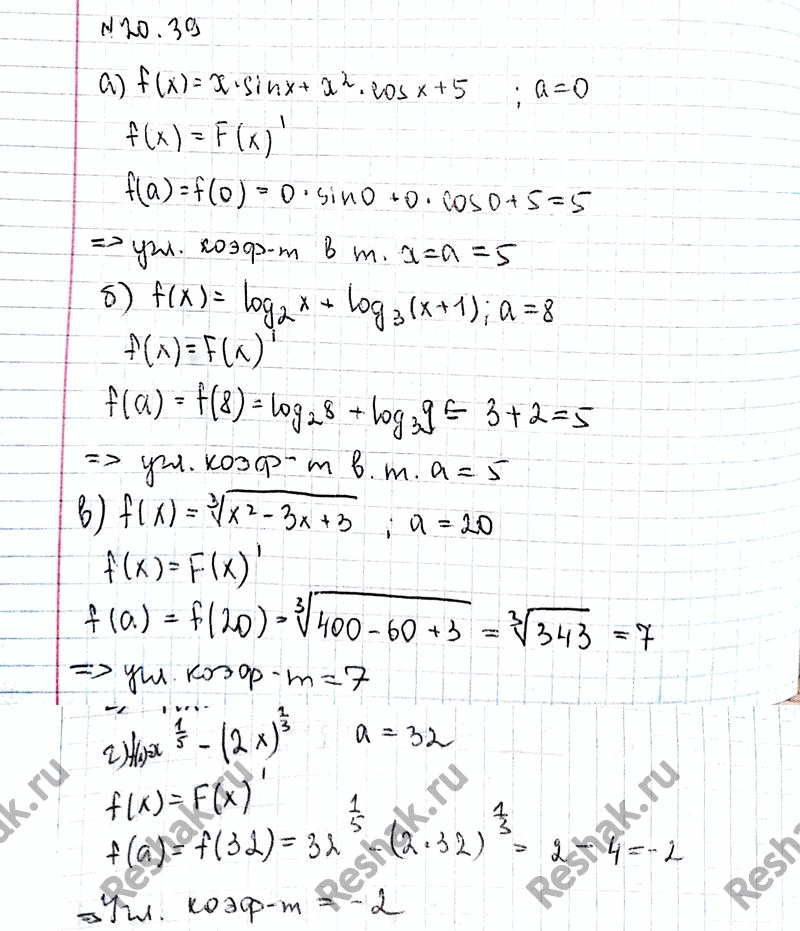 №20.39
а) f(x) = x·sinx + x²·cosx + 5 ; a=0
f(x) = F(x)'
f(a) = f(0) = 0·sin0 + 0·cos0 + 5 = 5
=> угл. коэф-т в т. x=a = 5
б) f(x) = log₂x + log₃(x+1); a=8
f(x) = F(x)'
f(a) = f(8) = log₂8 + log₃9 = 3+2=5
=> угл. коэф-т в. т. a = 5
в) f(x) = ∛(x² - 3x + 3) ; a = 20
f(x) = F(x)'
f(a) = f(20) = ∛(400 - 60 + 3) = ∛343 = 7
=> угл. коэф-т = 7
г) f(x)=x^(1/5) - (2x)^(1/3) a = 32
f(x) = F(x)'
f(a) = f(32) = 32^(1/5) - (2·32)^(1/3) = 2 - 4 = -2
=> Угл. коэф-т = -2
Reshak.ru
Reshak.ru
Reshak.ru
Reshak.ru